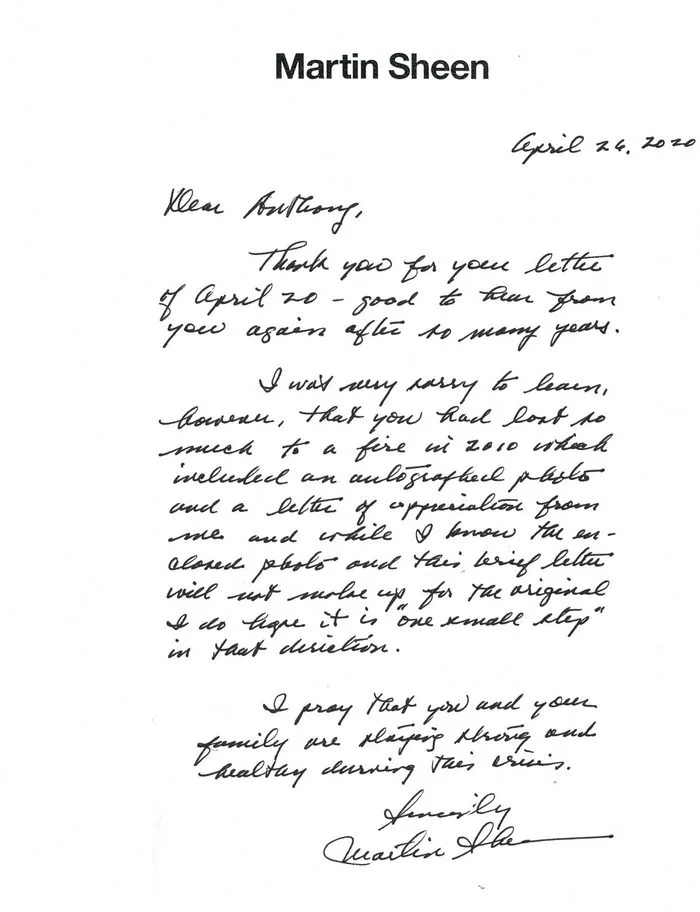 Martin Sheen
April 26, 2020
Dear Anthony,
Thank you for your letter
of April 20 - good to hear from
you again after so many years.
I was very sorry to learn,
however, that you had lost so
much to a fire in 2010 which
included an autographed photo
and a letter of appreciation from
me and while I know the en-
closed photo and this brief letter
will not make up for the original
I do hope it is "one small step"
in that direction.
I pray that you and your
family are staying strong and
healthy durning this crisis.
Sincerily
Martin Sheen